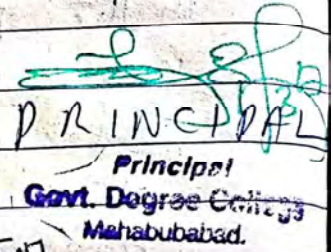 PRINCIPAL
Principal
Govt. Degree College
Mahabubabad.